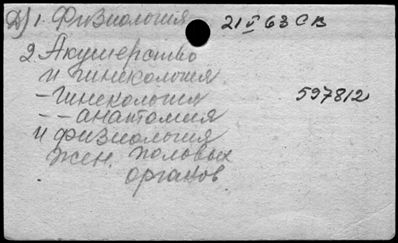 Д) 1. Физиология 21 V 63 СВ
2 Акушерство
и гинекология
- Гинекология 597812
-- анатомия
и физиология
жен. половых
органов.